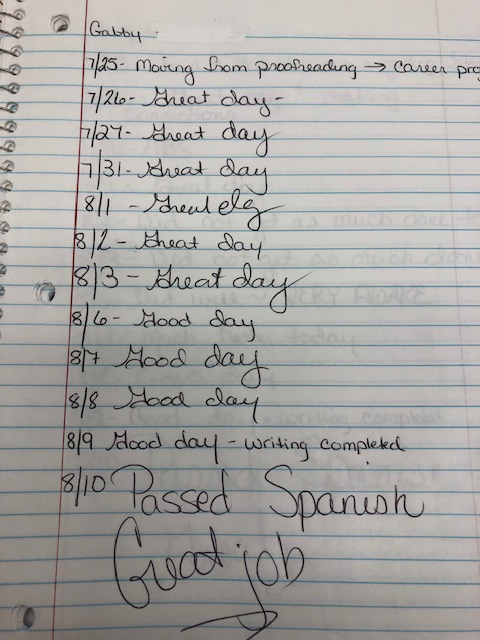 Gabby
7/25- Moving from proofreading → career pro
7/26- Great day-
7/27- Great day
7/31- Great day
8/1 - Great
8/2 - Great day
8/3 - Great day
8/6- Good day
8/7 Good day
8/8 Good day
8/9 Good day - writing completed
8/10 Passed Spanish
Great job
→